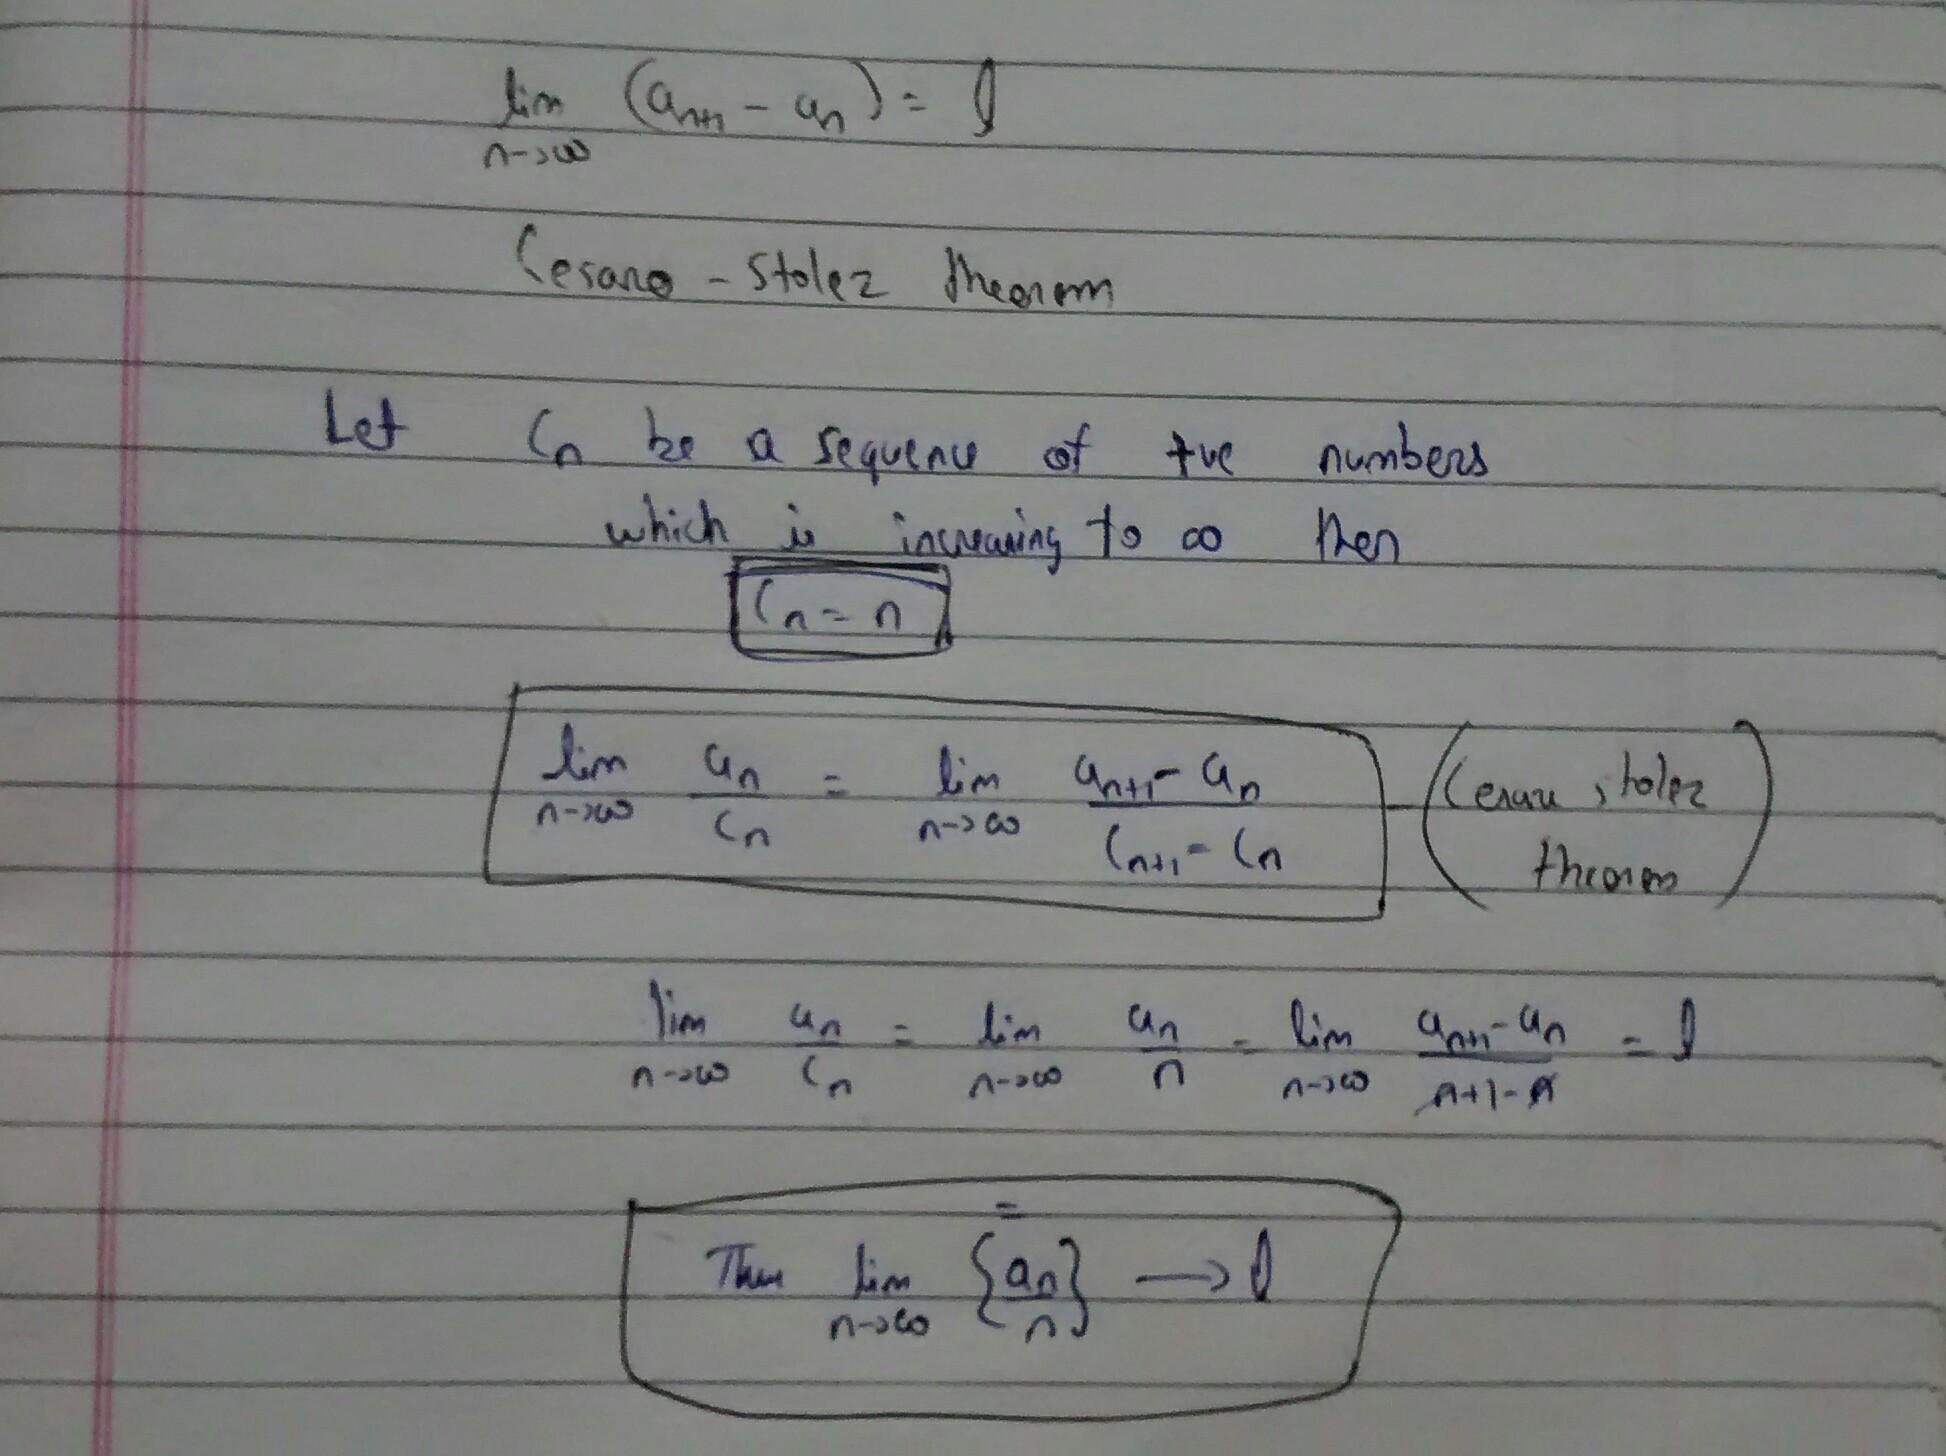 lim (aₙ₊₁ - aₙ) = l
n->∞
Cesaro - Stolez theorem
Let Cₙ be a sequence of +ve numbers
which is increasing to ∞ then
Cₙ = n
lim aₙ/Cₙ = lim (aₙ₊₁ - aₙ)/(Cₙ₊₁ - Cₙ) (Cesaro stolez
n->∞ n->∞ theorem)
lim aₙ/Cₙ = lim aₙ/n = lim (aₙ₊₁ - aₙ)/(n+1-n) = l
n->∞ n->∞ n->∞
=
Then lim {aₙ/n} → l
n->∞